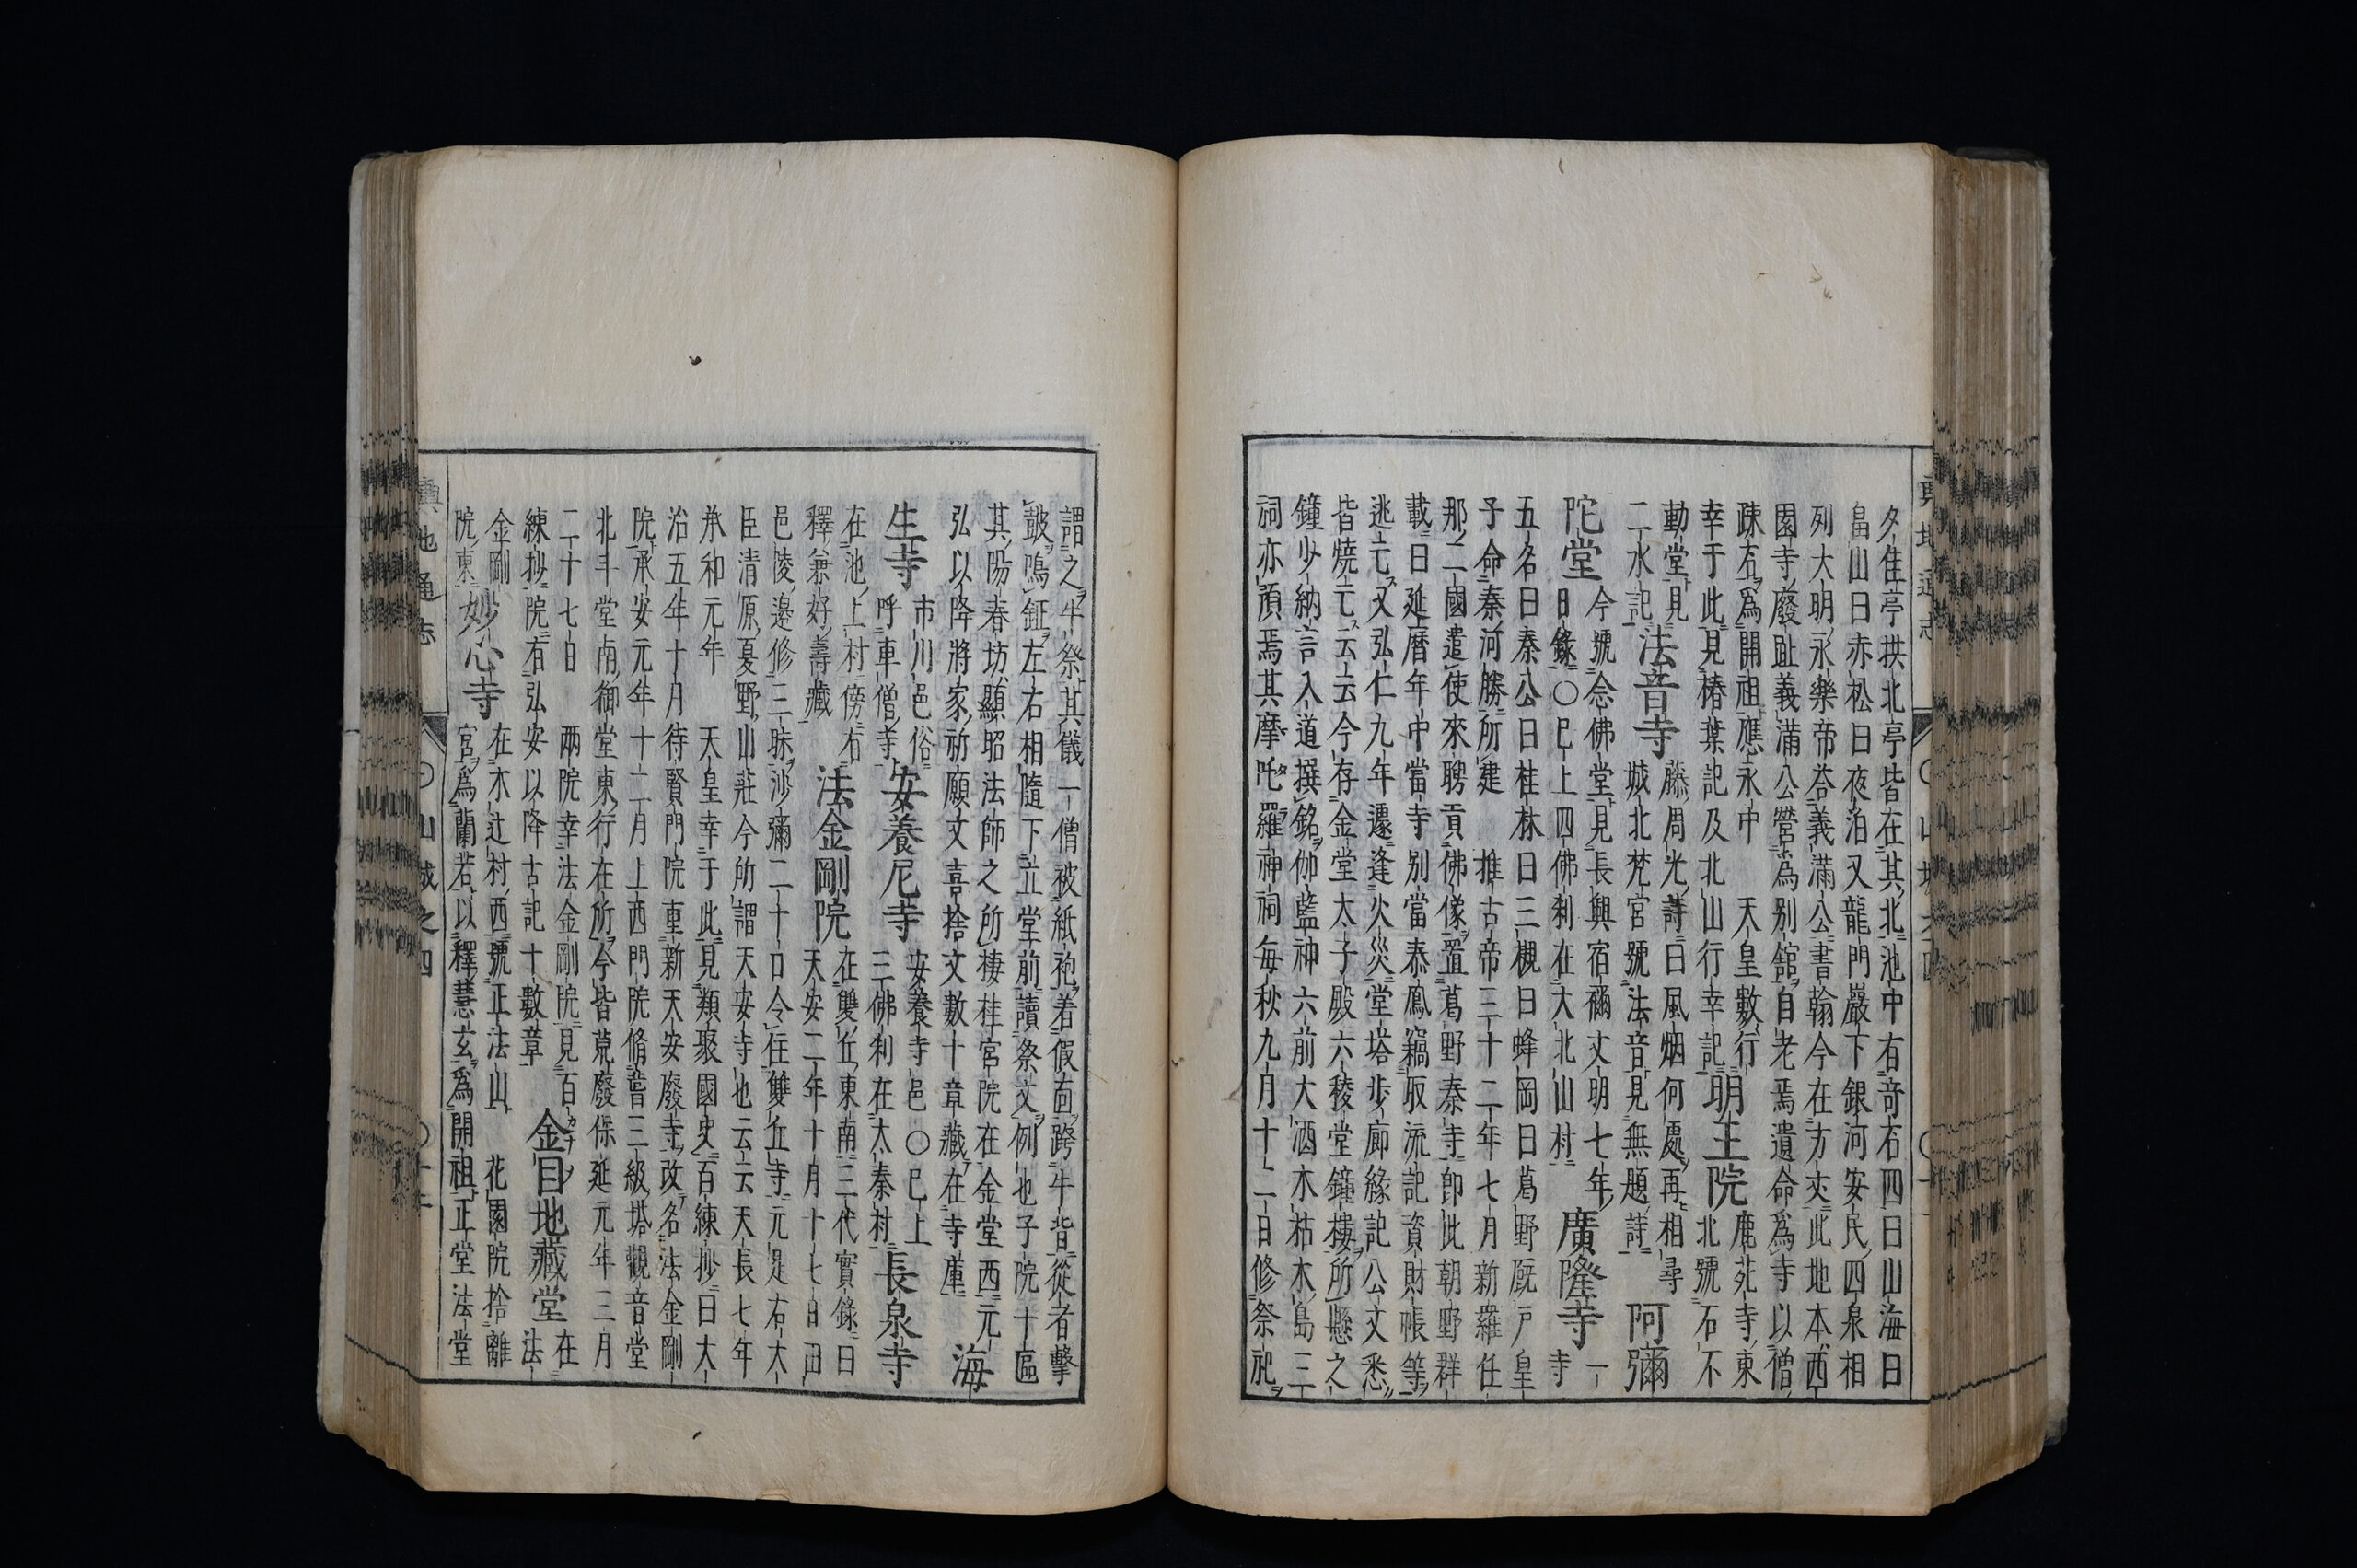 夕佳亭拱北亭皆在其北池中有奇石四曰山海曰
畠山曰赤松曰夜泊又龍門巖下銀河安民四泉相
列大明永樂帝荅義滿公書翰今在方丈此地本西
園寺廢趾義滿公營爲別舘自老焉遺命爲寺以僧
疎石爲開祖應永中　天皇數行
幸于此見椿葉記及北山行幸記明王院鹿苑寺東
北號石不
動堂見
二水記法音寺藤周光詩曰風烟何處再相尋
城北梵宮號法音見無題詩　阿彌
陀堂今號念佛堂見長興宿禰文明七年
日錄〇巳上四佛刹在大北山村　廣隆寺一
寺
五名曰秦公曰桂林曰三槻曰蜂岡曰葛野厩戸皇
子命秦河勝所建　推古帝三十二年七月新羅任
那二國遣使來聘貢佛像置葛野秦寺即此朝野群
載曰延曆年中當寺別當泰鳳竊取流記資財帳等
逃亡又弘仁九年遷逢火災堂塔步廊緣記公文悉
皆燒亡云云今存金堂太子殿六稜堂鐘樓所懸之
鐘少納言入道撰銘伽藍神六前大酒木枯木島三
祠亦預焉其摩吒羅神祠每秋九月十二日修祭祀
謂之牛祭其儀一僧被紙袍着假面跨牛背從者擊
鼓鳴鉦左右相隨下立堂前讀祭文例也子院十區
其陽春坊顯昭法師之所棲桂宮院在金堂西元
弘以降將家祈願文喜捨文數十章藏在寺庫　海
生寺市川邑俗
呼車僧寺安養尼寺安養寺邑〇巳上
三佛刹在太秦村長泉寺
在池上村傍有
釋兼好壽藏　法金剛院在雙丘東南三代實錄曰
天安二年十月十七日田
邑陵邊修三昧沙彌二十口令住雙丘寺元是右大
臣清原夏野山莊今所謂天安寺也云云天長七年
承和元年　天皇幸于此見類聚國史百練抄曰大
治五年十月待賢門院重新天安廢寺改名法金剛
院承安元年十二月上西門院脩葺三級塔觀音堂
北斗堂南御堂東行在所今皆荒廢保延元年三月
二十七日　兩院幸法金剛院見百
練抄院有弘安以降古記十數章　金目地藏堂在
法
金剛
院東妙心寺在木辻村西號正法山　花園院捨離
宮爲蘭若以釋慧玄爲開祖正堂法堂
輿地通志　〇山城之四